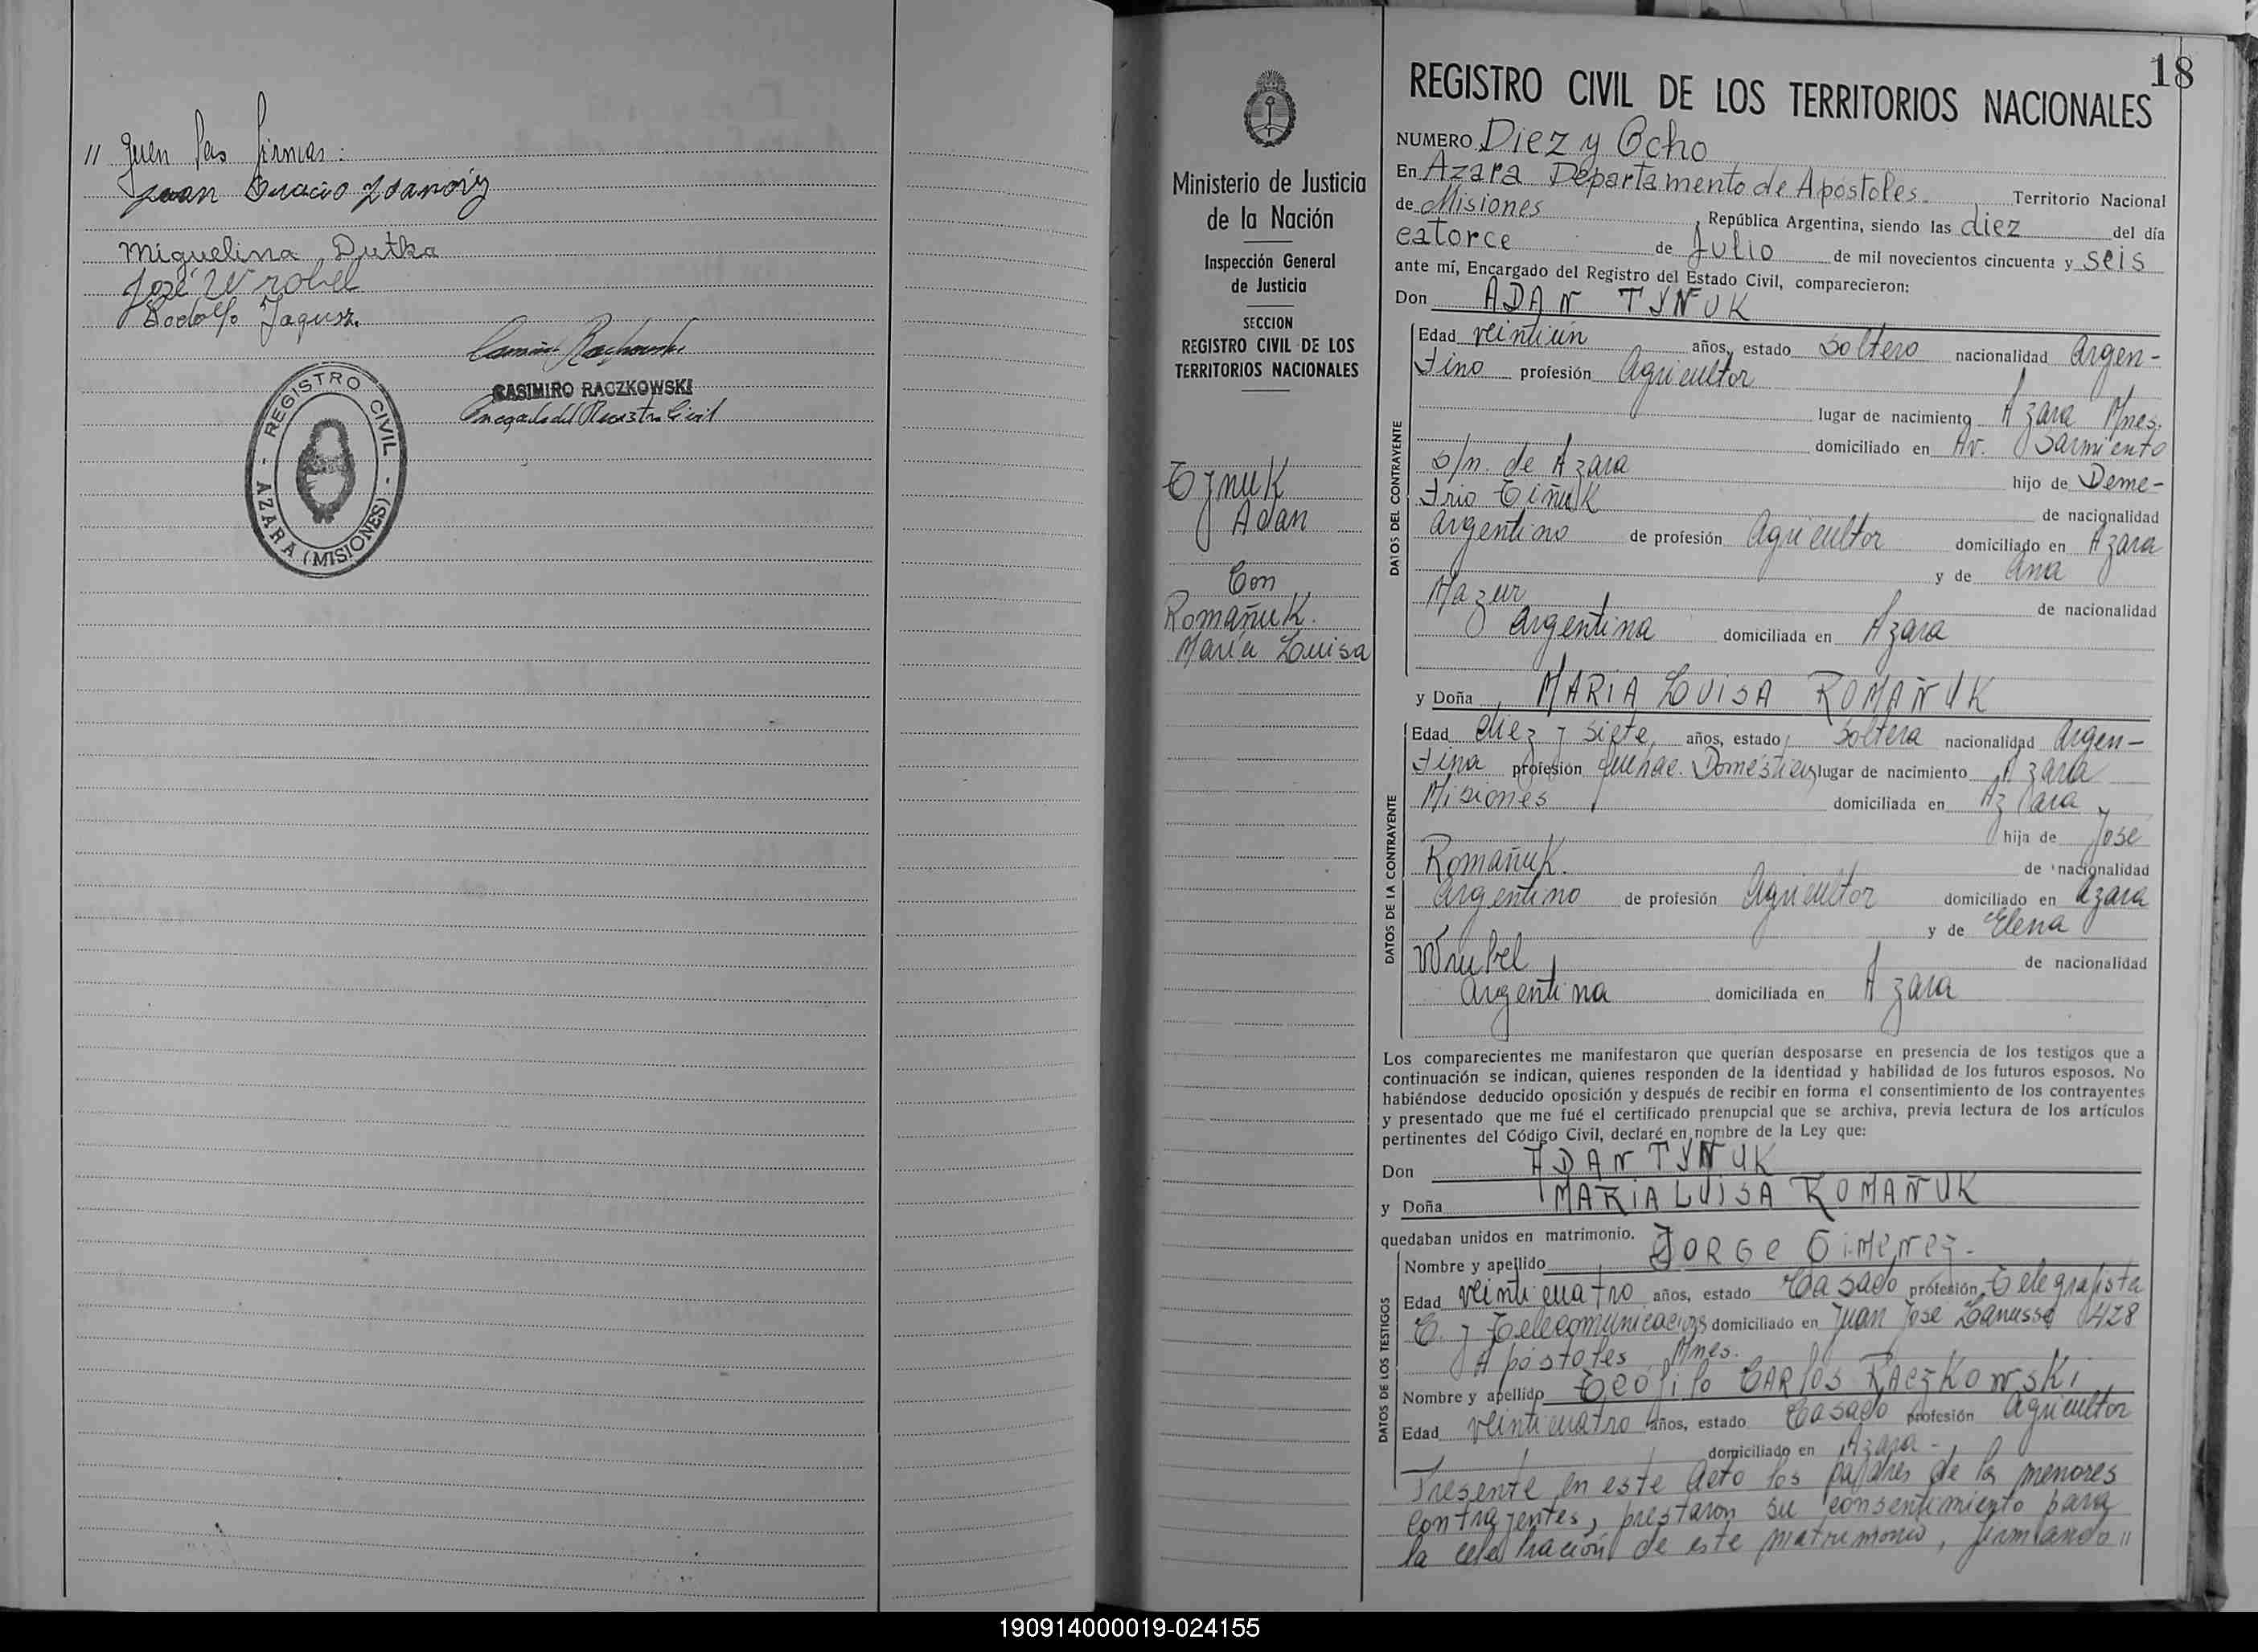 // guen las firmas:
Juan
Miguelina Dutka
José Wrobel
Rodolfo Jagusz.
CASIMIRO RACZKOWSKI
Encargado del Registro Civil
REGISTRO CIVIL
AZARA (MISIONES)
18
Ministerio de Justicia
de la Nación
Inspección General
de Justicia
SECCION
REGISTRO CIVIL DE LOS
TERRITORIOS NACIONALES
Tynuk
Adan
Con
Romañuk.
María Luisa
REGISTRO CIVIL DE LOS TERRITORIOS NACIONALES
NUMERO Diez y Ocho
En Azara Departamento de Apóstoles. Territorio Nacional
de Misiones, República Argentina, siendo las diez del día
catorce de Julio de mil novecientos cincuenta y seis
ante mí, Encargado del Registro del Estado Civil, comparecieron:
Don ADAN TYÑUK
DATOS DEL CONTRAYENTE
Edad veintiún años, estado Soltero nacionalidad Argen-
tino profesión Agricultor
lugar de nacimiento Azara Mnes.
domiciliado en Av. Sarmiento
s/n. de Azara hijo de Deme-
trio Tiñuk de nacionalidad
argentino de profesión Agricultor domiciliado en Azara
y de Ana
Mazur de nacionalidad
Argentina domiciliada en Azara
y Doña MARIA LUISA ROMAÑUK
DATOS DE LA CONTRAYENTE
Edad diez y siete, años, estado Soltera nacionalidad Argen-
tina profesión quehac. Domésticos lugar de nacimiento Azara
Misiones domiciliada en Azara
hija de José
Romañuk. de nacionalidad
Argentino de profesión Agricultor domiciliado en Azara
y de Elena
Wrubel de nacionalidad
Argentina domiciliada en Azara
Los comparecientes me manifestaron que querían desposarse en presencia de los testigos que a
continuación se indican, quienes responden de la identidad y habilidad de los futuros esposos. No
habiéndose deducido oposición y después de recibir en forma el consentimiento de los contrayentes
y presentado que me fué el certificado prenupcial que se archiva, previa lectura de los artículos
pertinentes del Código Civil, declaré en nombre de la Ley que:
Don ADAN TYÑUK
y Doña MARIA LUISA ROMAÑUK
quedaban unidos en matrimonio.
DATOS DE LOS TESTIGOS
Nombre y apellido JORGE Gimenez.
Edad veinticuatro años, estado Casado profesión Telegrafista
C. y Telecomunicacions domiciliado en Juan José Lanusse 428
Apóstoles Mnes.
Nombre y apellido Teófilo CARlos RAczKowski
Edad veinticuatro años, estado Casado profesión Agricultor
domiciliado en Azara-
Presente en este Acto los padres de los menores
contrayentes, prestaron su consentimiento para
la celebración de este matrimonio, firmando //
190914000019-024155